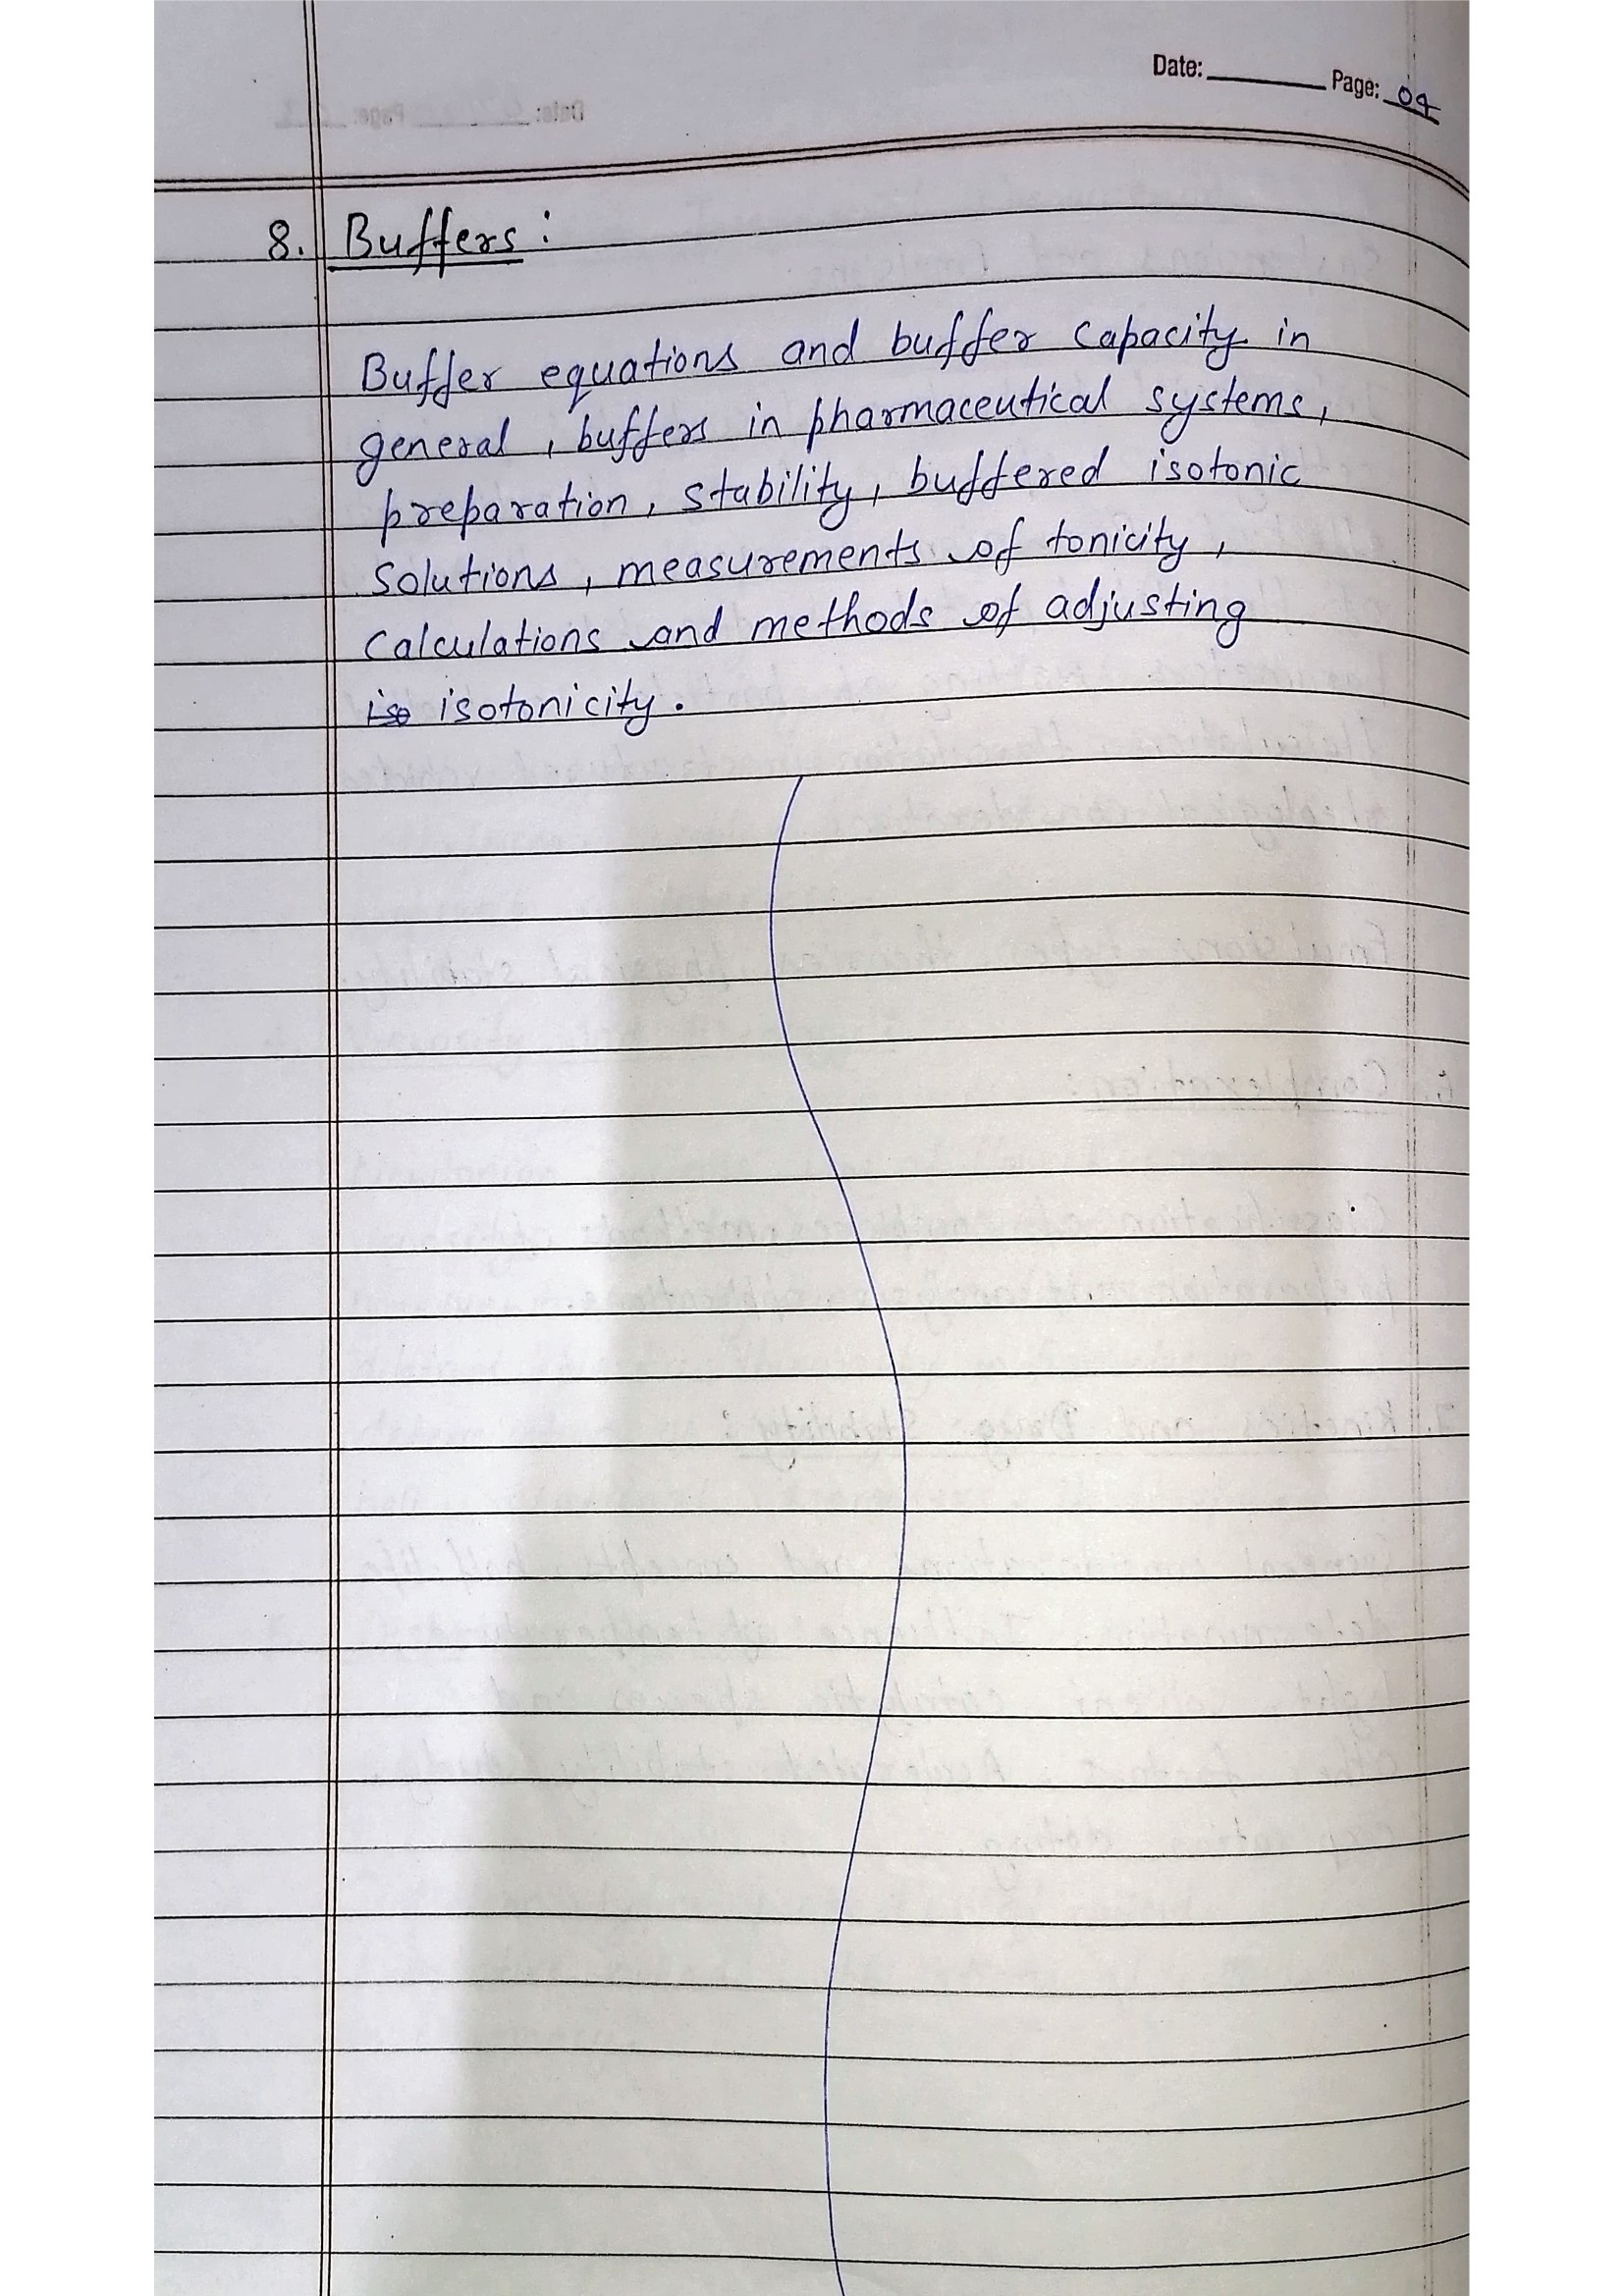 Date: Page: 04
8. Buffers :
Buffer equations and buffer capacity in
general , buffers in pharmaceutical systems,
preparation, stability, buffered isotonic
solutions, measurements of tonicity ,
calculations and methods of adjusting
iso isotonicity .